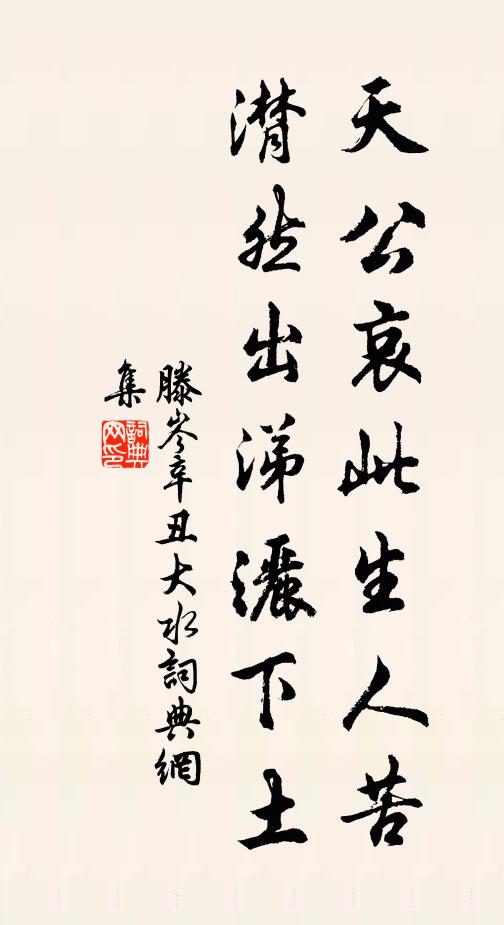 天公哀此生人苦
潸然出涕灑下土
滕岑辛丑大水詞典網
集
詞典網印